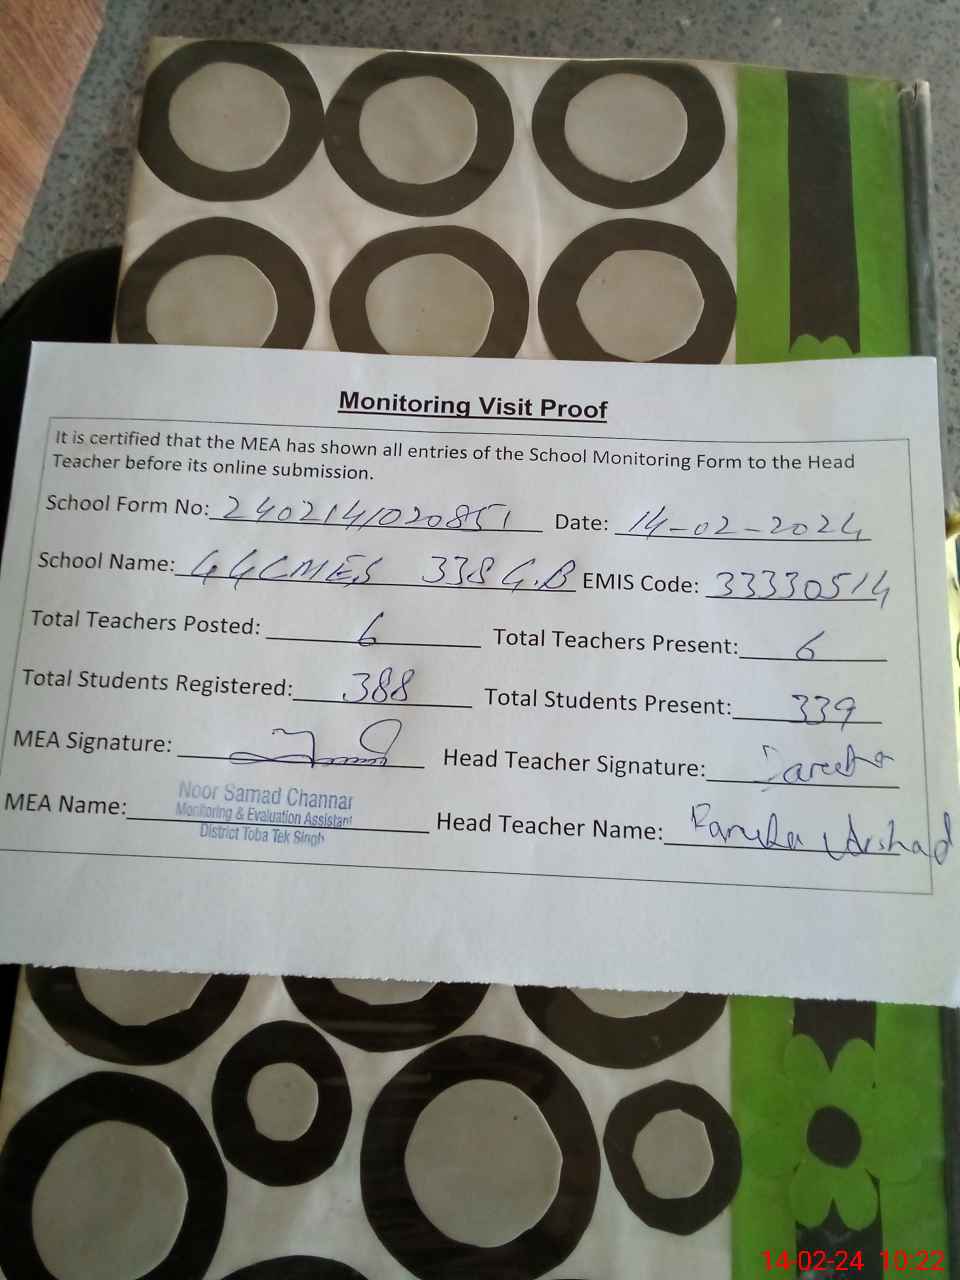 Monitoring Visit Proof
It is certified that the MEA has shown all entries of the School Monitoring Form to the Head
Teacher before its online submission.
School Form No: 240214/020851 Date: 14-02-2024
School Name: GGCMES 338 G.B EMIS Code: 33330514
Total Teachers Posted: 6 Total Teachers Present: 6
Total Students Registered: 388 Total Students Present: 339
MEA Signature: Head Teacher Signature:
MEA Name: Noor Samad Channar
Monitoring & Evaluation Assistant
District Toba Tek Singh
Head Teacher Name: Arshad
14-02-24 10:22